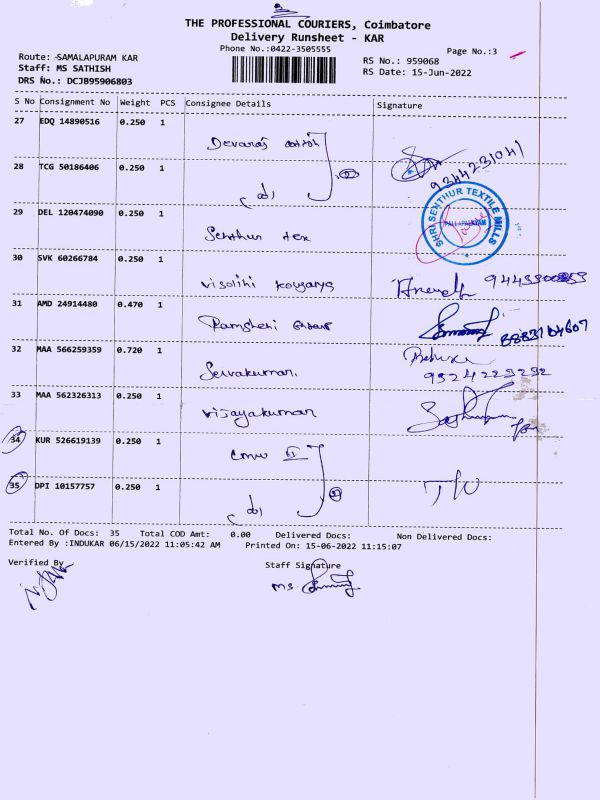 THE PROFESSIONAL COURIERS, Coimbatore
Delivery Runsheet - KAR
Phone No.:0422-3505555
Page No.:3
Route: SAMALAPURAM KAR
Staff: MS SATHISH
DRS No.: DCJB95906803
RS No.: 959068
RS Date: 15-Jun-2022
S No Consignment No Weight PCS Consignee Details Signature
27 EDQ 14890516 0.250 1
Devaraj
28 TCG 50186406 0.250 1
9344231041
29 DEL 120474090 0.250 1
Senthur tex
SHRI SENTHUR TEXTILE MILLS
30 SVK 60266784 0.250 1
31 AMD 24914480 0.470 1
32 MAA 566259359 0.720 1
Selvakumar.
33 MAA 562326313 0.250 1
Vijayakumar
34 KUR 526619139 0.250 1
35 DPI 10157757 0.250 1
Total No. Of Docs: 35 Total COD Amt: 0.00 Delivered Docs: Non Delivered Docs:
Entered By :INDUKAR 06/15/2022 11:05:42 AM Printed On: 15-06-2022 11:15:07
Verified By Staff Signature
MS